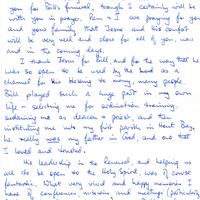 you for Bill's funeral, though I certainly will be
with you in prayer. Pam + I are praying for you
and your family, that Jesus and his comfort
will be very real and close for all of you, now
and in the coming days.
I thank Jesus for Bill and for the way that he
was so open to be used by the Lord as a
channel for his blessing to many, many people.
Bill played such a huge part in my own
life - selecting me for ordination training,
ordaining me as deacon + priest, and then
instituting me into my first parish in Hout Bay,
he really was my father in God, and one that
I loved and trusted.
His leadership in the Renewal, and helping us
all to be open to the Holy Spirit, was of course
fantastic. What very vivid and happy memories I
have of conferences, missions and meetings (particularly